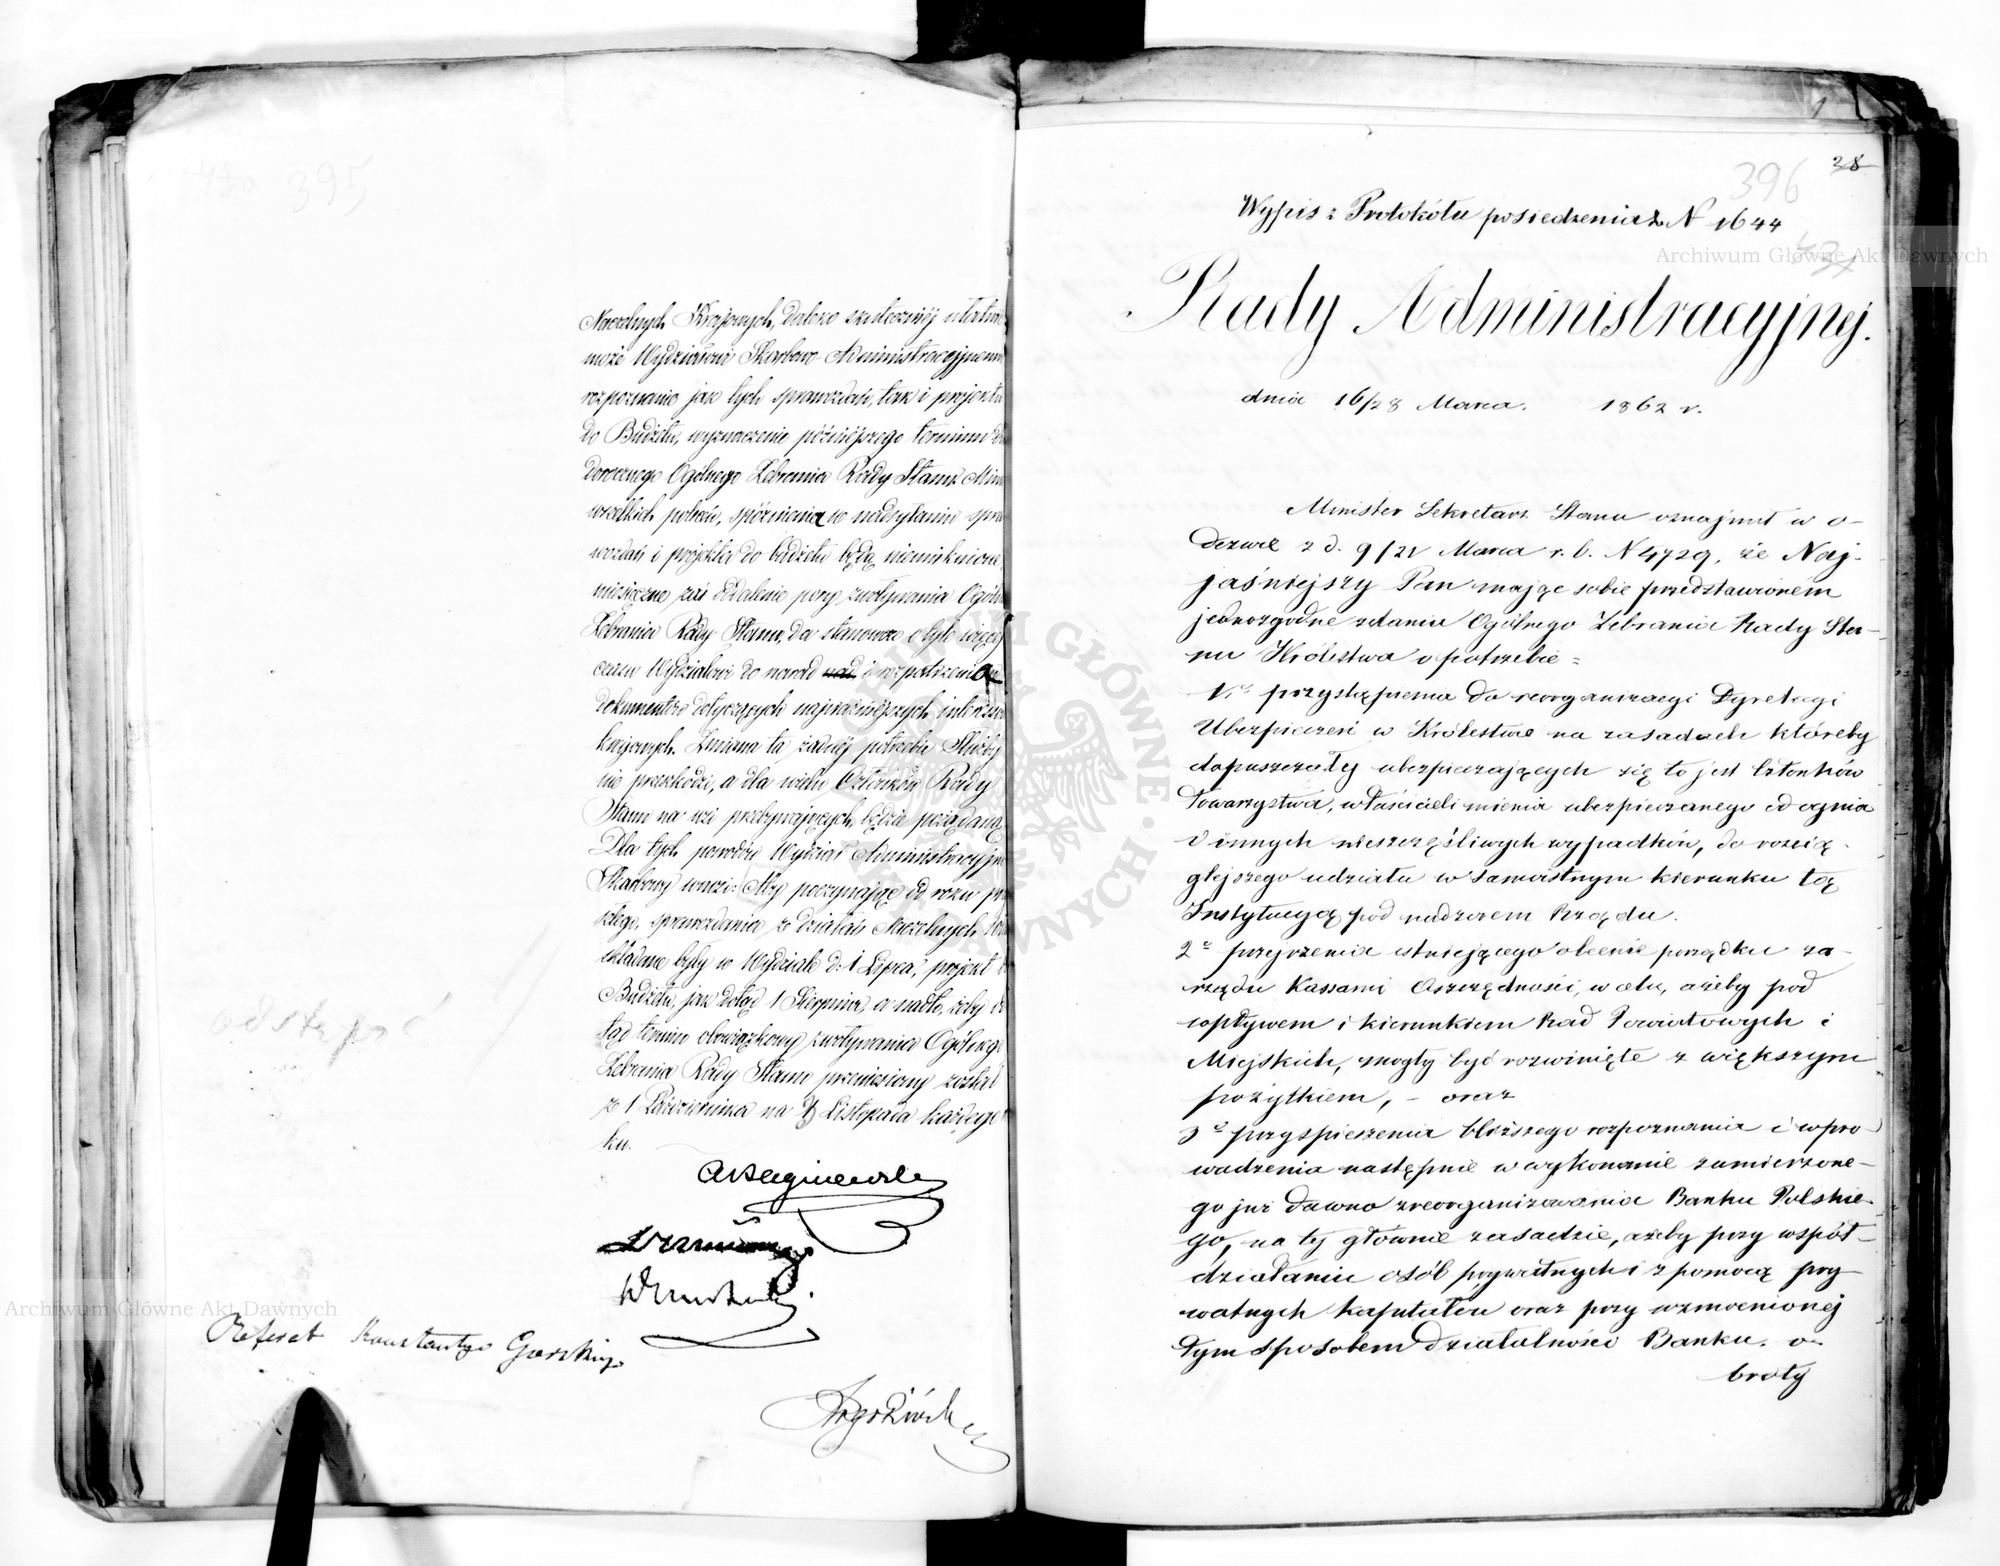 395
Naczelnych Krajowych, daleko skuteczniéj ułatwić
może Wydziałowi Skarbowo-Administracyjnemu
rozpoznanie jak tych sprawozdań, tak i projektu
do Budżetu, wyznaczenie późniéjszego terminu do
dorocznego Ogólnego Zebrania Rady Stanu. Mimo
wszelkich poleceń, spóźniania w nadsyłaniu spra
wozdań i projektu do budżetu będą nieuniknione,
miesięczne zaś oddalenie pory zwoływania Ogóln
Zebrania Rady Stanu, da stanowczo o tyle więcéj
czasu Wydziałowi do narad nad i rozpatrzenia
dokumentów dotyczących najważniejszych interesów
krajowych. Zmiana ta żadnéj potrzebie Służby
nie przeszkodzi, a dla wielu Członków Rady
Stanu na wsi przebywających, będzie pożądaną.
Dla tych powodów Wydział Administracyjno
Skarbowy wnosi: Aby poczynając od roku przy
szłego, sprawozdania z działań Naczelnych Wła
składane były w Wydziale d: 1 Lipca, projekt
Budżetu, jak dotąd 1 Sierpnia, a nadto, żeby
tąd termin obowiązkowy zwoływania Ogólnego
Zebrania Rady Stanu przeniesiony został
z 1 Października na 1 Listopada każdego
ku.
Referat Konstantego Górskiego
odstąpić
28
396
Wypis z Protokółu posiedzenia N 1644
Rady Administracyjnej.
dnia 16/28 Marca. 1862 r.
Minister Sekretarz Stanu oznajmił w o-
dezwie z d. 9/21 Marca r. b. N 4729, że Naj-
jaśniejszy Pan mając sobie przedstawionem
jednozgodne zdanie Ogólnego Zebrania Rady Sta-
nu Królestwa o potrzebie =
1. przystąpienia do reorganizacyi Dyrekcyi
Ubezpieczeń w Królestwie na zasadach któreby
dopuszczały ubezpieczających się to jest Członków
Towarzystwa, właścicieli mienia ubezpieczanego od ognia
i innych nieszczęśliwych wypadków, do rozcią-
glejszego udziału w samoistnym kierunku tą
Instytucyą pod nadzorem Rządu.
2e przejrzenia istniejącego obecnie porządku za-
rządu Kassami Oszczędności, w celu, ażeby pod
wpływem i kierunkiem Rad Powiatowych i
Miejskich, mogły być rozwinięte z większym
pożytkiem, - oraz
3e przyspieszenia bliższego rozpoznania i wpro-
wadzenia następnie w wykonanie zamierzone-
go już dawno zreorganizowania Banku Polskie-
go, na tej głównie zasadzie, ażeby przy współ-
działaniu osób prywatnych i z pomocą pry-
watnych kapitałów oraz przy wzmocnionej
tym sposobem działalności Banku. o-
broty
Archiwum Główne Akt Dawnych
Archiwum Główne Akt Dawnych
ARCHIWUM GŁÓWNE AKT DAWNYCH